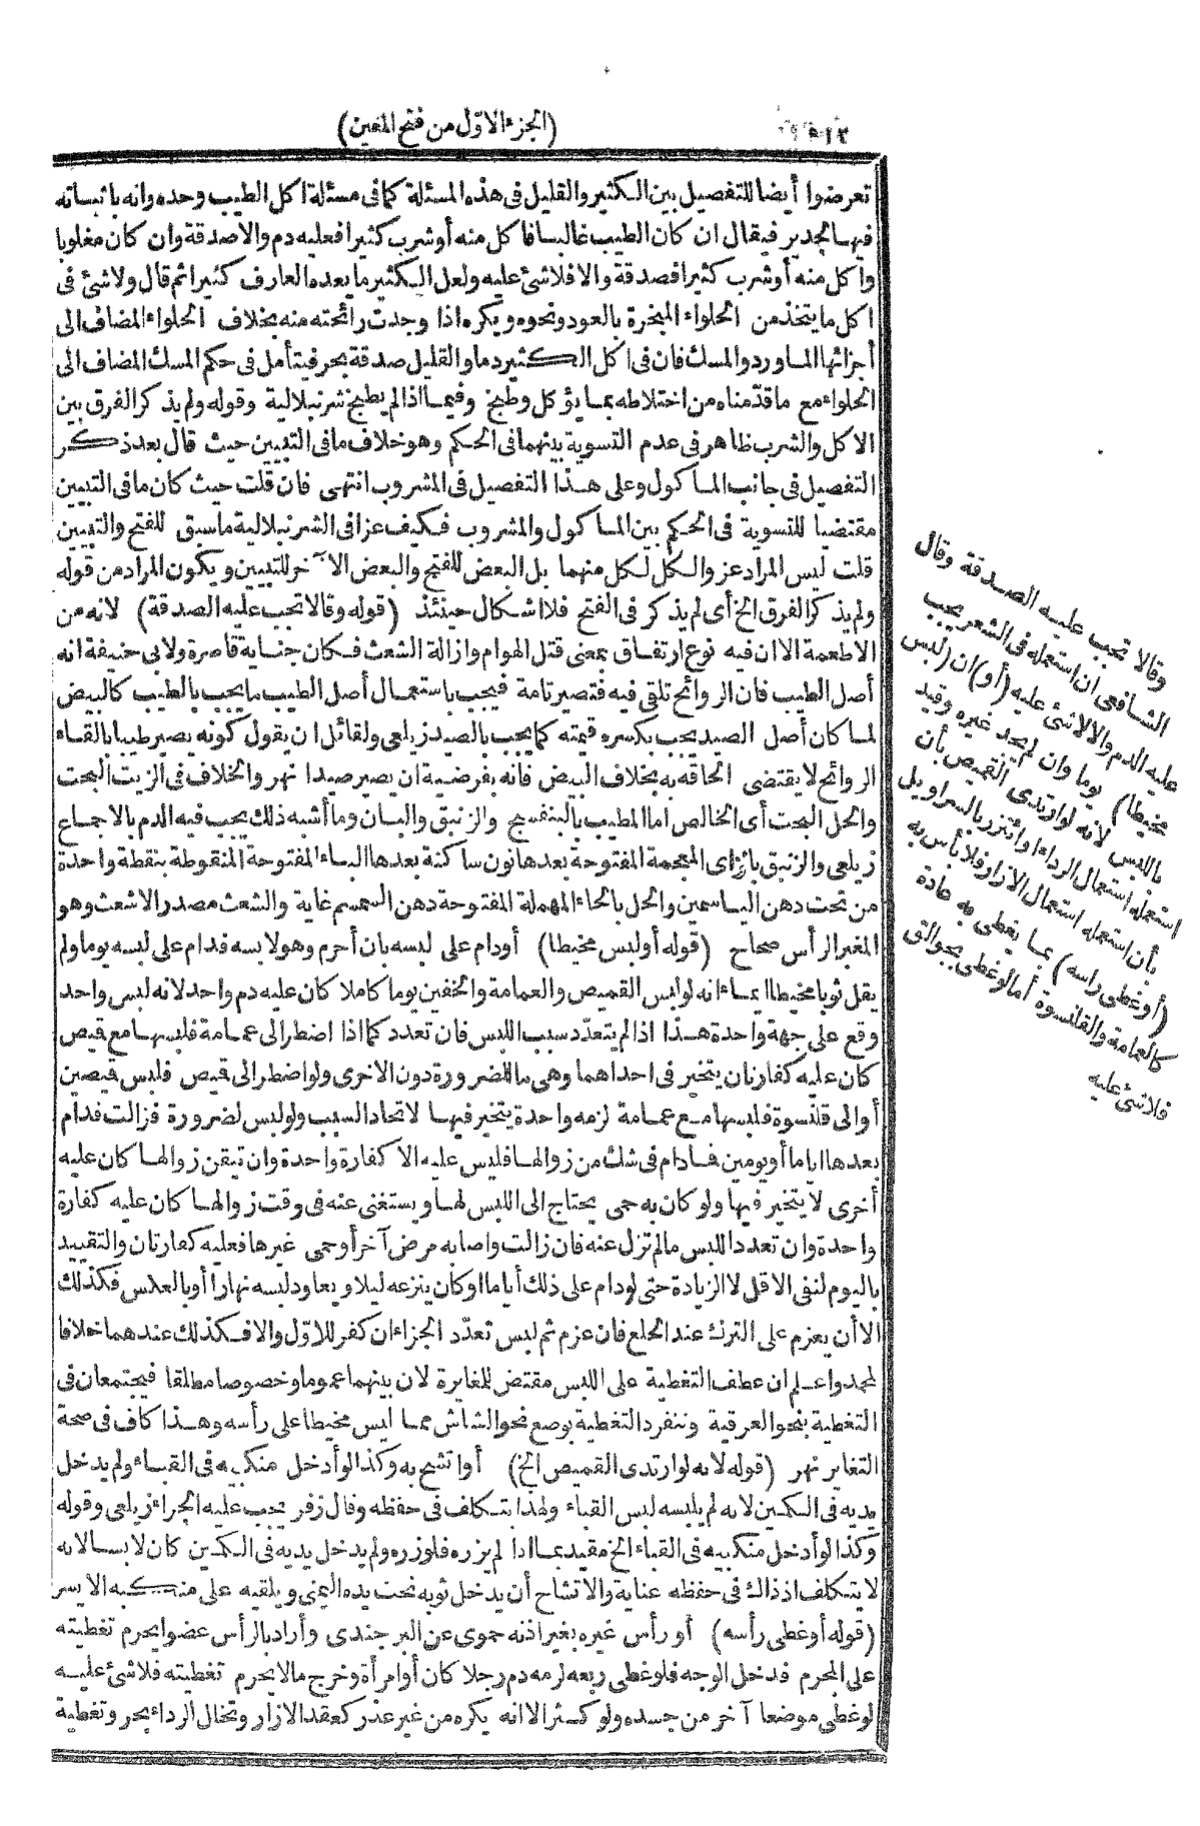 (الجزء الاوّل من فتح المعين)
تعرضوا أيضا للتفصيل بين الكثير والقليل فى هذه المسئلة كما فى مسئلة اكل الطيب وحده وانه باثباته
فيها لجدير فيقال ان كان الطيب غالبا فاكل منه أوشرب كثيرا فعليه دم والاصدقة وان كان مغلوبا
واكل منه أوشرب كثيرا فصدقة والافلاشئ عليه ولعل الكثير ما يعده العارف كثيرا ثم قال ولاشئ فى
اكل ما يتخذ من الحلواء المبخرة بالعود ونحوه ويكره اذا وجدت رائحته منه بخلاف الحلواء المضاف الى
أجزائها الماورد والمسك فان فى اكل الكثير دما والقليل صدقة بحر فيتأمل فى حكم المسك المضاف الى
الحلواء مع ما قدّمناه من اختلاطه بما يؤكل وطبخ وفيما اذالم يطبخ شرنبلالية وقوله ولم يذكر الفرق بين
الاكل والشرب ظاهر فى عدم التسوية بينهما فى الحكم وهو خلاف ما فى التبيين حيث قال بعد ذكر
التفصيل فى جانب المأكول وعلى هذا التفصيل فى المشروب انتهى فان قلت حيث كان ما فى التبيين
مقتضيا للتسوية فى الحكم بين المأكول والمشروب فكيف عزا فى الشرنبلالية ماسبق للفتح والتبيين
قلت ليس المراد عزو الكل لكل منهما بل البعض للفتح والبعض الآخر للتبيين ويكون المراد من قوله
ولم يذكر الفرق الخ أى لم يذكر فى الفتح فلااشكال حينئذ (قوله وقالا تجب عليه الصدقة) لانه من
الاطعمة الاان فيه نوع ارتفاق بمعنى قتل الهوام وازالة الشعث فكان جناية قاصرة ولابى حنيفة انه
أصل الطيب فان الروائح تلقى فيه فتصير تامة فيجب باستعمال أصل الطيب ما يجب بالطيب كالبيض
لما كان أصل الصيد يجب بكسره قيمته كما يجب بالصيد زيلعى ولقائل ان يقول كونه يصير طيبا بالقاء
الروائح لا يقتضى الحاقه به بخلاف البيض فانه بفرضية ان يصير صيدا نهر والخلاف فى الزيت البحت
والحل البحت أى الخالص اما المطيب بالبنفسج والزنبق والبان وما أشبه ذلك يجب فيه الدم بالاجماع
زيلعى والزنبق بالزاى المعجمة المفتوحة بعدها نون ساكنة بعدها الباء المفتوحة المنقوطة بنقطة واحدة
من تحت دهن الياسمين والحل بالحاء المهملة المفتوحة دهن السمسم غاية والشعث مصدر الاشعث وهو
المغبر الرأس صحاح (قوله أولبس مخيطا) أودام على لبسه بان أحرم وهو لابسه فدام على لبسه يوما ولم
يقل ثوبا مخيطا ايماء انه لو لبس القميص والعمامة والخفين يوما كاملا كان عليه دم واحد لانه لبس واحد
وقع على جهة واحدة هذا اذا لم يتعدّد سبب اللبس فان تعدد كما اذا اضطر الى عمامة فلبسها مع قميص
كان عليه كفارتان يتخير فى احداهما وهى ما للضرورة دون الاخرى ولو اضطر الى قميص فلبس قميصين
أوالى قلنسوة فلبسها مع عمامة لزمه واحدة يتخير فيها لاتحاد السبب ولو لبس لضرورة فزالت فدام
بعدها اياما أويومين فمادام فى شك من زوالها فليس عليه الا كفارة واحدة وان تيقن زوالها كان عليه
أخرى لا يتخير فيها ولو كان به حمى يحتاج الى اللبس لها ويستغنى عنه فى وقت زوالها كان عليه كفارة
واحدة وان تعدد اللبس مالم تزل عنه فان زالت واصابه مرض آخر أوحمى غيرها فعليه كفارتان والتقييد
باليوم لنفى الاقل لا الزيادة حتى لو دام على ذلك أياما اوكان ينزعه ليلا ويعاود لبسه نهارا أوبالعكس فكذلك
الاأن يعزم على الترك عند الخلع فان عزم ثم لبس تعدّد الجزاء ان كفر للاوّل والافكذلك عندهما خلافا
لمحمد واعلم ان عطف التغطية على اللبس مقتض للمغايرة لان بينهما عموما وخصوصا مطلقا فيجتمعان فى
التغطية بنحو العرقية وتنفرد التغطية بوضع نحو الشاش مما ليس مخيطا على رأسه وهذا كاف فى صحة
التغاير نهر (قوله لانه لوارتدى القميص الخ) أواتشح به وكذا لوأدخل منكبيه فى القباء ولم يدخل
يديه فى الكمين لانه لم يلبسه لبس القباء ولهذا يتكلف فى حفظه وقال زفر يجب عليه الجزاء زيلعى وقوله
وكذا لوأدخل منكبيه فى القباء الخ مقيد بما اذا لم يزره فلوزره ولم يدخل يديه فى الكمين كان لابسا لانه
لا يتكلف اذ ذاك فى حفظه عناية والاتشاح أن يدخل ثوبه تحت يده اليمنى ويلقيه على منكبه الايسر
(قوله أوغطى رأسه) أو رأس غيره بغير اذنه حموى عن البرجندى وأراد بالرأس عضوا يحرم تغطيته
على المحرم فدخل الوجه فلوغطى ربعه لزمه دم رجلا كان أوامرأة وخرج مالا يحرم تغطيته فلاشئ عليه
لوغطى موضعا آخر من جسده ولو كثر الا انه يكره من غير عذر كعقد الازار وتخلل الرداء بحر وتغطية
وقالا تجب عليه الصدقة وقال
الشافعى ان استعمله فى الشعر يجب
عليه الدم والالاشئ عليه (أو) ان (لبس
مخيطا) يوما وان لم يجد غيره وقيد
باللبس لانه لوارتدى القميص بأن
استعمله استعمال الرداء اواتزر بالسراويل
بأن استعمله استعمال الازار فلا بأس به
(أوغطى رأسه) بما يغطى به عادة
كالعمامة والقلنسوة أما لوغطى بجوالق
فلاشئ عليه